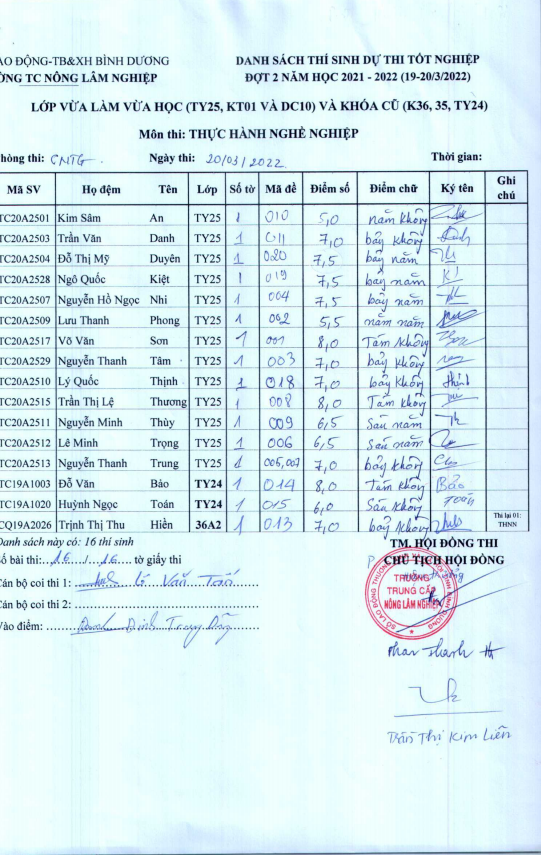 AO ĐỘNG-TB&XH BÌNH DƯƠNG
DANH SÁCH THÍ SINH DỰ THI TỐT NGHIỆP
ỜNG TC NÔNG LÂM NGHIỆP
ĐỢT 2 NĂM HỌC 2021 - 2022 (19-20/3/2022)
LỚP VỪA LÀM VỪA HỌC (TY25, KT01 VÀ DC10) VÀ KHÓA CŨ (K36, 35, TY24)
Môn thi: THỰC HÀNH NGHỀ NGHIỆP
hòng thi: CNTG. Ngày thi: 20/03/2022 Thời gian:
Mã SV Họ đệm Tên Lớp Số tờ Mã đề Điểm số Điểm chữ Ký tên Ghi chú
TC20A2501 Kim Sâm An TY25 1 010 5,0 năm không
TC20A2503 Trần Văn Danh TY25 1 011 7,0 bảy không
TC20A2504 Đỗ Thị Mỹ Duyên TY25 1 020 7,5 bảy năm
TC20A2528 Ngô Quốc Kiệt TY25 1 019 7,5 bảy năm
TC20A2507 Nguyễn Hồ Ngọc Nhi TY25 1 004 7,5 bảy năm
TC20A2509 Lưu Thanh Phong TY25 1 002 5,5 năm năm
TC20A2517 Võ Văn Sơn TY25 1 001 8,0 Tám không
TC20A2529 Nguyễn Thanh Tâm TY25 1 003 7,0 bảy không
TC20A2510 Lý Quốc Thịnh TY25 1 018 7,0 bảy không thịnh
TC20A2515 Trần Thị Lệ Thương TY25 1 008 8,0 Tám không
TC20A2511 Nguyễn Minh Thùy TY25 1 009 6,5 Sáu năm
TC20A2512 Lê Minh Trọng TY25 1 006 6,5 Sáu năm
TC20A2513 Nguyễn Thanh Trung TY25 1 005,007 7,0 bảy không
TC19A1003 Đỗ Văn Bảo TY24 1 014 8,0 Tám không Bảo
TC19A1020 Huỳnh Ngọc Toán TY24 1 015 6,0 Sáu không Toán
CQ19A2026 Trịnh Thị Thu Hiền 36A2 1 013 7,0 bảy không Thi lại 01: THNN
Danh sách này có: 16 thí sinh
TM. HỘI ĐỒNG THI
ố bài thi: 16 / 16 tờ giấy thi
CHỦ TỊCH HỘI ĐỒNG
Cán bộ coi thi 1: Lê Văn
TRƯỜNG
TRUNG CẤP
NÔNG LÂM NGHIỆP
Cán bộ coi thi 2:
Vào điểm: Đinh Trung Dũng
Phan Thanh
Trần Thị Kim Liên